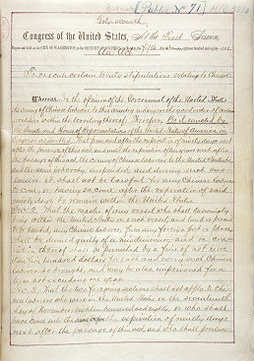 Forty-seventh
Public No 71
Congress of the United States, At the First Session,
An Act
To execute certain treaty stipulations relating to Chinese
Whereas in the opinion of the Government of the United States
the coming of Chinese laborers to this country endangers the good order of certain
localities within the territory thereof: Therefore, Be it enacted by
the Senate and House of Representatives of the United States of America in
Congress assembled, That from and after the expiration of ninety days next
after the passage of this act, and until the expiration of ten years next after
the passage of this act, the coming of Chinese laborers to the United States be,
and the same is hereby suspended; and during such suspension
it shall not be lawful for any Chinese laborer
to come, or having so come after the expiration of said
ninety days to remain within the United States.
Sec. 2. That the master of any vessel who shall knowingly
bring within the United States on such vessel, and land or permit
to be landed, any Chinese laborer, from any foreign port or place,
shall be deemed guilty of a misdemeanor, and on conviction
thereof shall be punished by a fine of not more
than five hundred dollars for each and every such Chinese
laborer so brought, and may be also imprisoned for a term
not exceeding one year.
Sec. 3. That the two foregoing sections shall not apply to Chinese
laborers who were in the United States on the seventeenth
day of November, eighteen hundred and eighty, or who shall
have come into the same before the expiration of ninety days
next after the passage of this act, and who shall produce